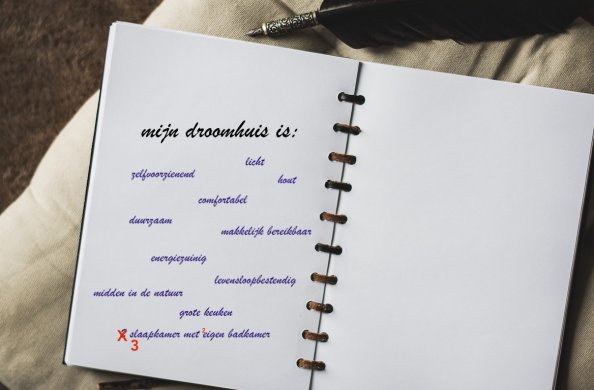 mijn droomhuis is:
licht
zelfvoorzienend
hout
comfortabel
duurzaam
makkelijk bereikbaar
energiezuinig
levensloopbestendig
midden in de natuur
grote keuken
slaapkamer met 2 eigen badkamer
3